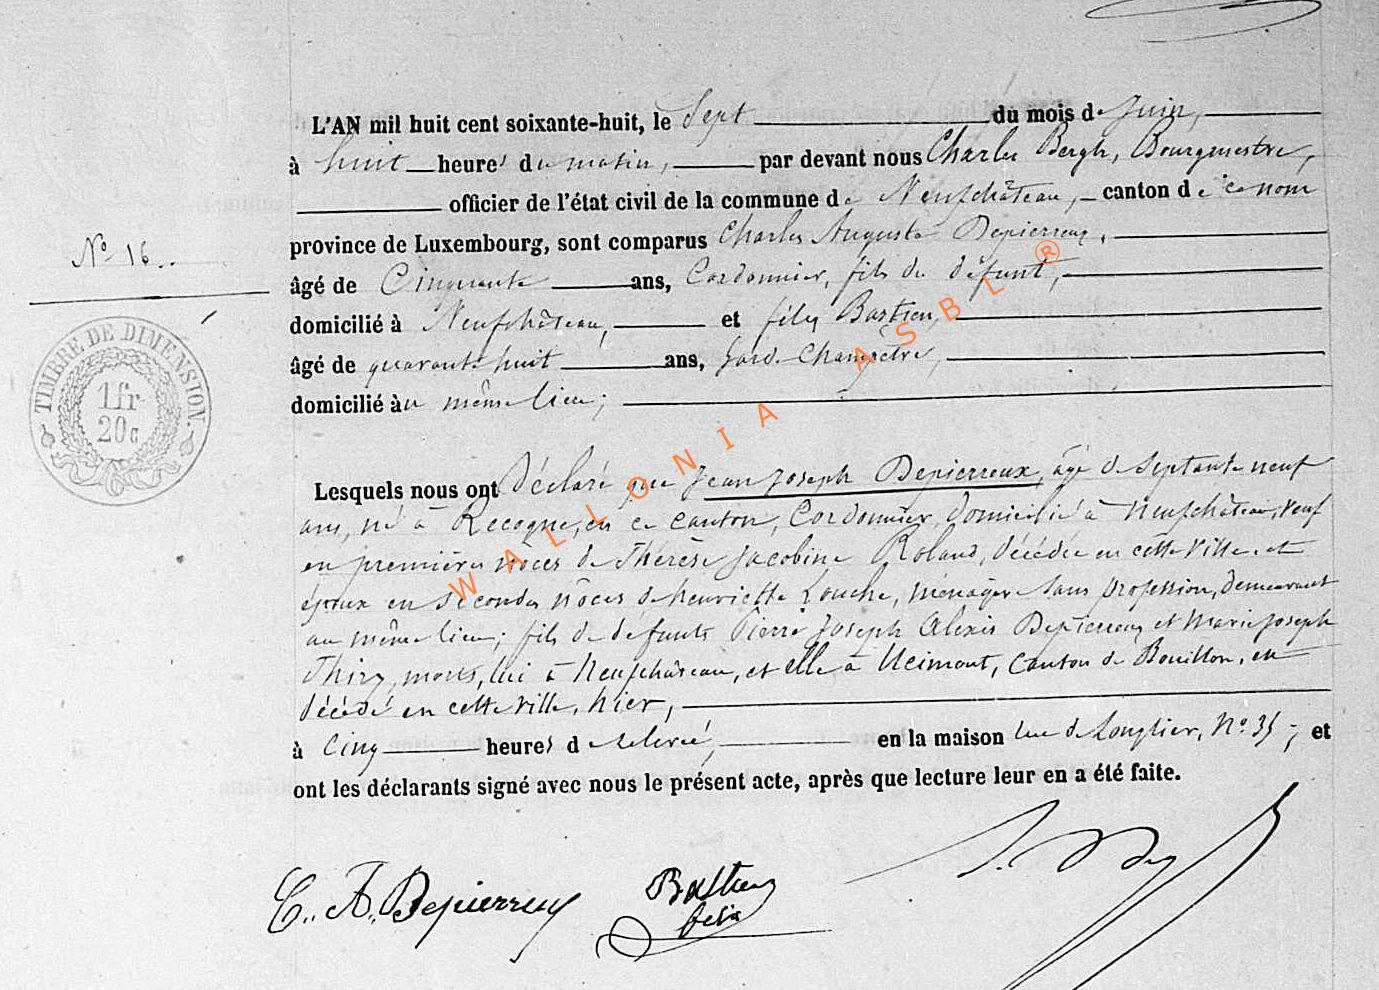 L'AN mil huit cent soixante-huit, le Sept du mois de Juin,
à huit heures du matin, par devant nous Charles Bergh, Bourgmestre,
officier de l'état civil de la commune de Neufchâteau, canton de ce nom
province de Luxembourg, sont comparus Charles Auguste Depierreux,
N° 16.
âgé de Cinquante ans, Cordonnier, fils du défunt,
domicilié à Neufchâteau, et félix Bastien,
âgé de quarante huit ans, Garde Champêtre,
domicilié au même lieu;
TIMBRE DE DIMENSION.
1 fr
20 c
WALLONIA ASBL ®
Lesquels nous ont Déclaré que Jean Joseph Depierreux, âgé de Septante neuf
ans, né à Recogne, en ce canton, Cordonnier, domicilié à Neufchâteau, Veuf
en premières noces de Thérèse Jacobine Roland, décédée en cette ville, et
époux en secondes nôces de henriette Louche, ménagère sans profession, demeurant
au même lieu; fils de défunts Pierre Joseph Alexis Depierreux et Marie Joseph
Thiry, morts, lui à Neufchâteau, et elle à Ucimont, Canton de Bouillon, est
décédé en cette ville, hier,
à Cinq heures de relevée, en la maison rue de Longlier, N° 35; et
ont les déclarants signé avec nous le présent acte, après que lecture leur en a été faite.
C. A. Depierreux Bastien
felix